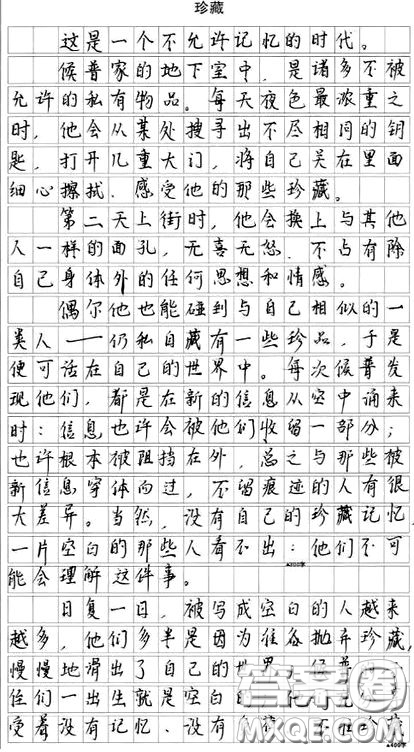 珍藏
这是一个不允许记忆的时代。
候普家的地下室中，是诸多不被
允许的私有物品。每天夜色最浓重之
时，他会从某处搜寻出不尽相同的钥
匙，打开几重大门，将自己关在里面
细心擦拭、感受他的那些珍藏。
第二天上街时，他会换上与其他
人一样的面孔，无喜无怒，不占有除
自己身体外的任何思想和情感。
偶尔他也能碰到与自己相似的一
类人——仍私自藏有一些珍品，于是
便可活在自己的世界中。每次候普发
现他们，都是在新的信息从空中涌来
时：信息也许会被他们收留一部分；
也许根本被阻挡在外，总之与那些被
新信息穿体而过，不留痕迹的人有很
大差异。当然，没有自己的珍藏记忆，
一片空白的那些人看不出：他们不可
▲200字
能会理解这件事。
日复一日，被写成空白的人越来
越多，他们多半是因为往各抛弃珍藏，
慢慢地滑出了自己的世界
任们一出生就是空白的
受着没有记忆、没有
▲400字
答案圈
MXQE.COM